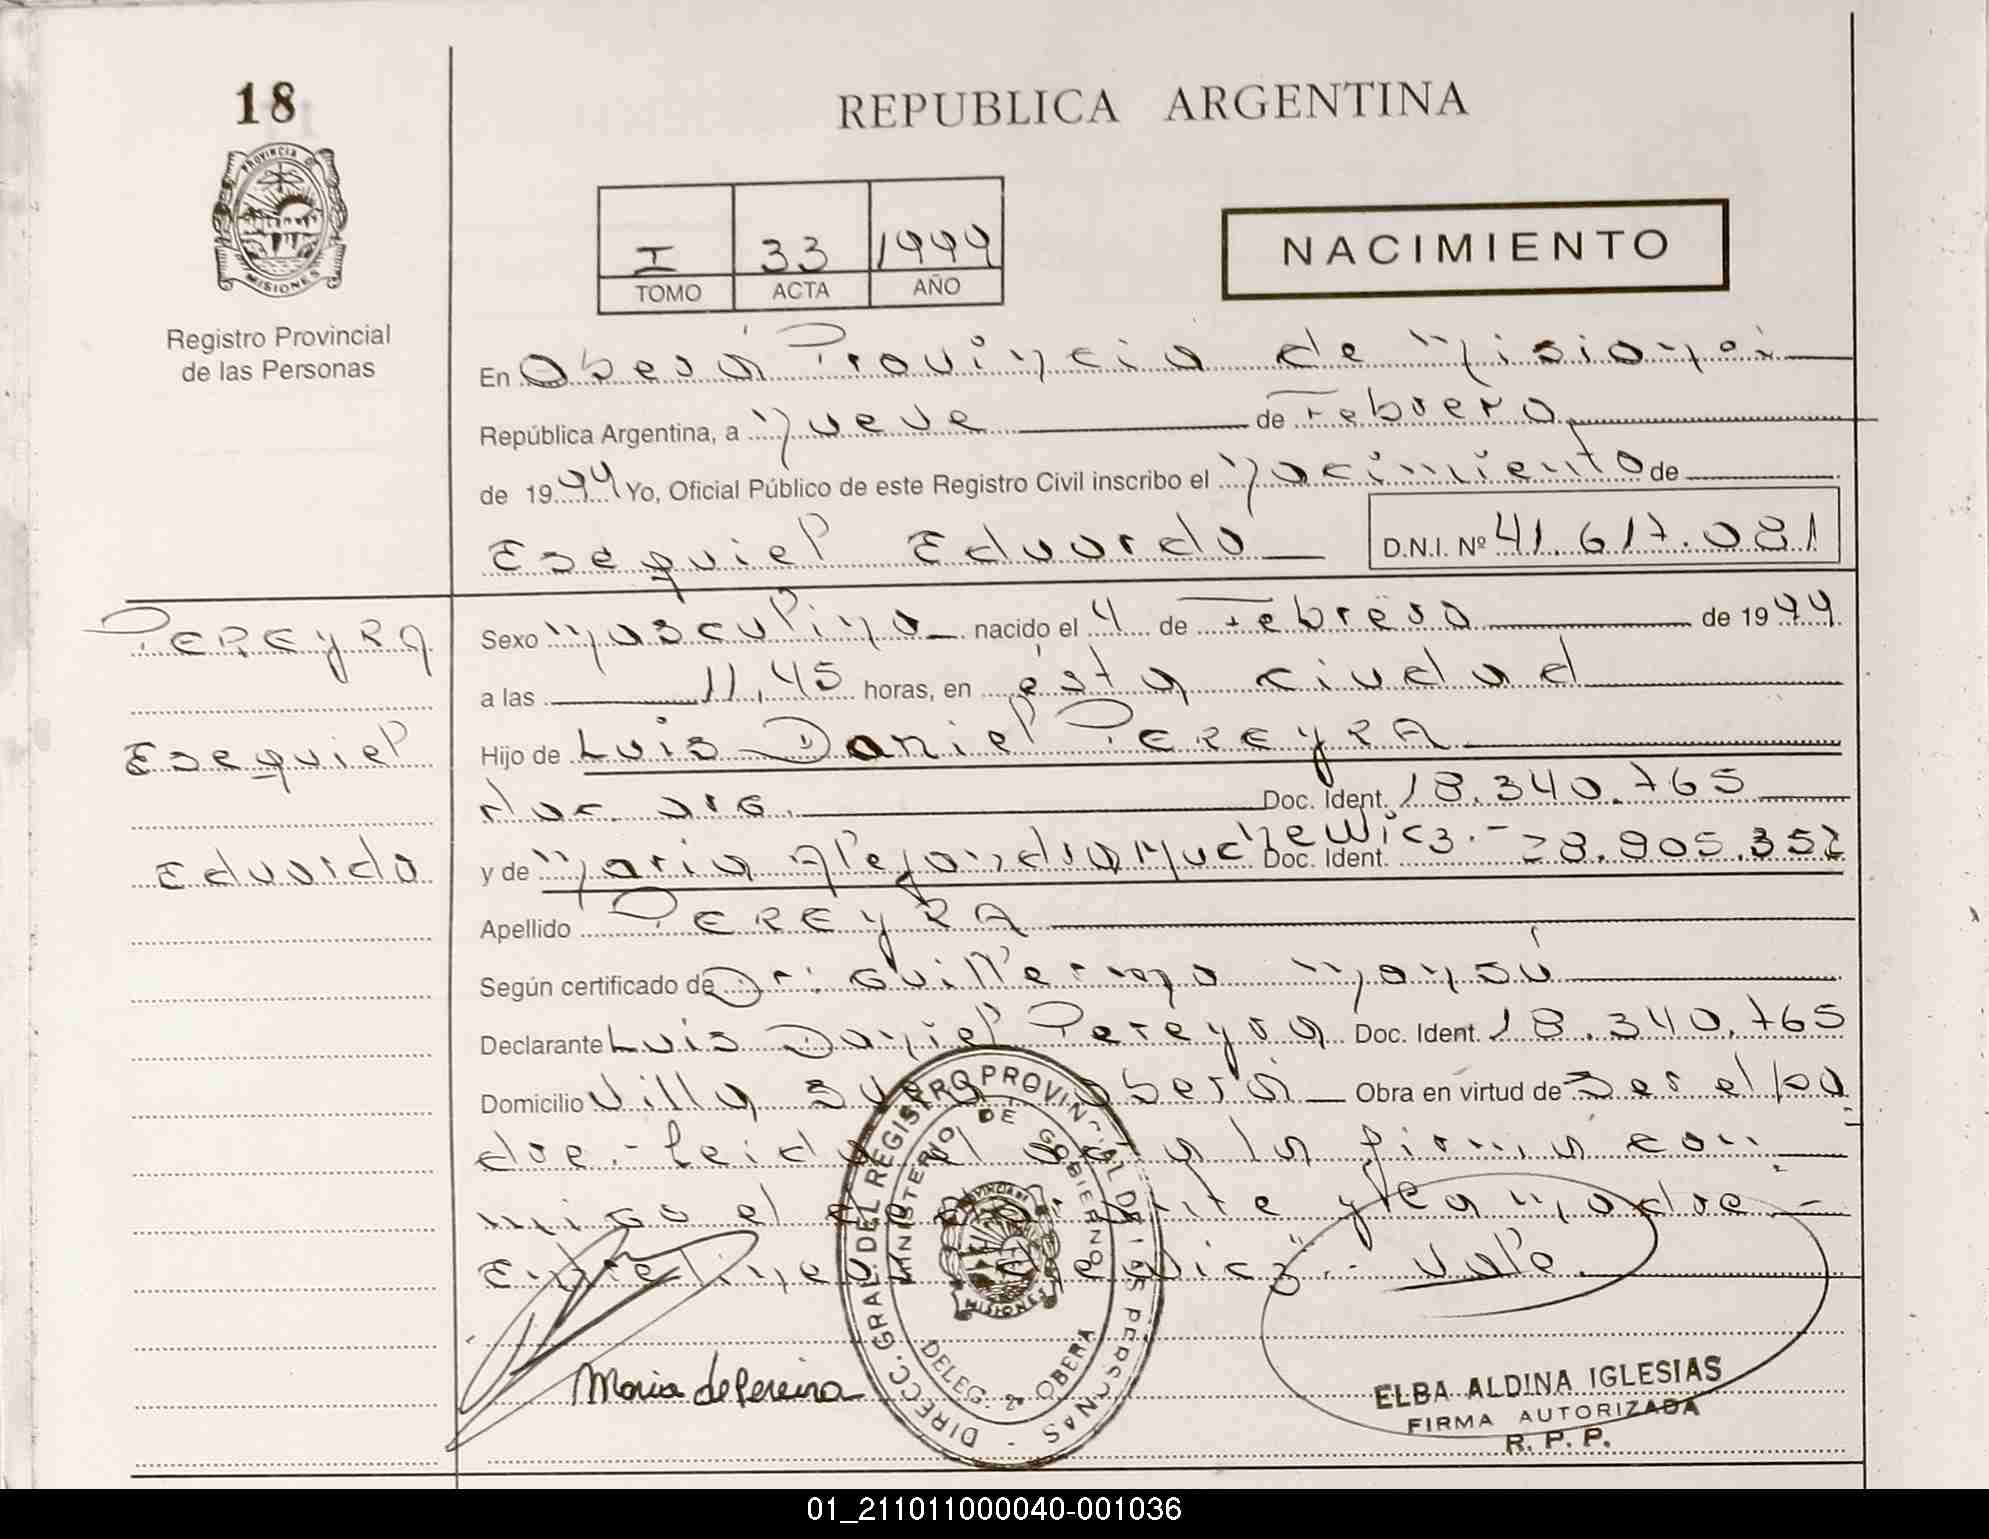 18
REPUBLICA ARGENTINA
PROVINCIA DE
MISIONES
Registro Provincial
de las Personas
I 33 1999
TOMO ACTA AÑO
NACIMIENTO
En Oberá Provincia de Misiones
República Argentina, a Nueve de Febrero
de 1999 Yo, Oficial Público de este Registro Civil inscribo el Nacimiento de
Esequiel Eduardo D.N.I. Nº 41.617.081
PEREYRA
Esequiel
Eduardo
Sexo Masculino nacido el 4 de Febrero de 1999
a las 11,45 horas, en ésta ciudad
Hijo de Luis Daniel PEREYRA
Doc. Ident. 18.340.765
y de Maria Alejandra Muchewicz.- Doc. Ident. 28.905.352
Apellido PEREYRA
Según certificado de Dr. Guillermo
Declarante Luis Daniel Pereyra Doc. Ident. 18.340.765
Domicilio Villa Oberá Obra en virtud de ser el pa
dre.- Leida el acta la firma con
migo el y la madre.-
Vale.
Maria de Pereira
DIRECC. GRAL. DEL REGISTRO PROVINCIAL DE LAS PERSONAS
MINISTERIO DE GOBIERNO
PROVINCIA DE
MISIONES
DELEG. OBERA
ELBA ALDINA IGLESIAS
FIRMA AUTORIZADA
R. P. P.
01_211011000040-001036